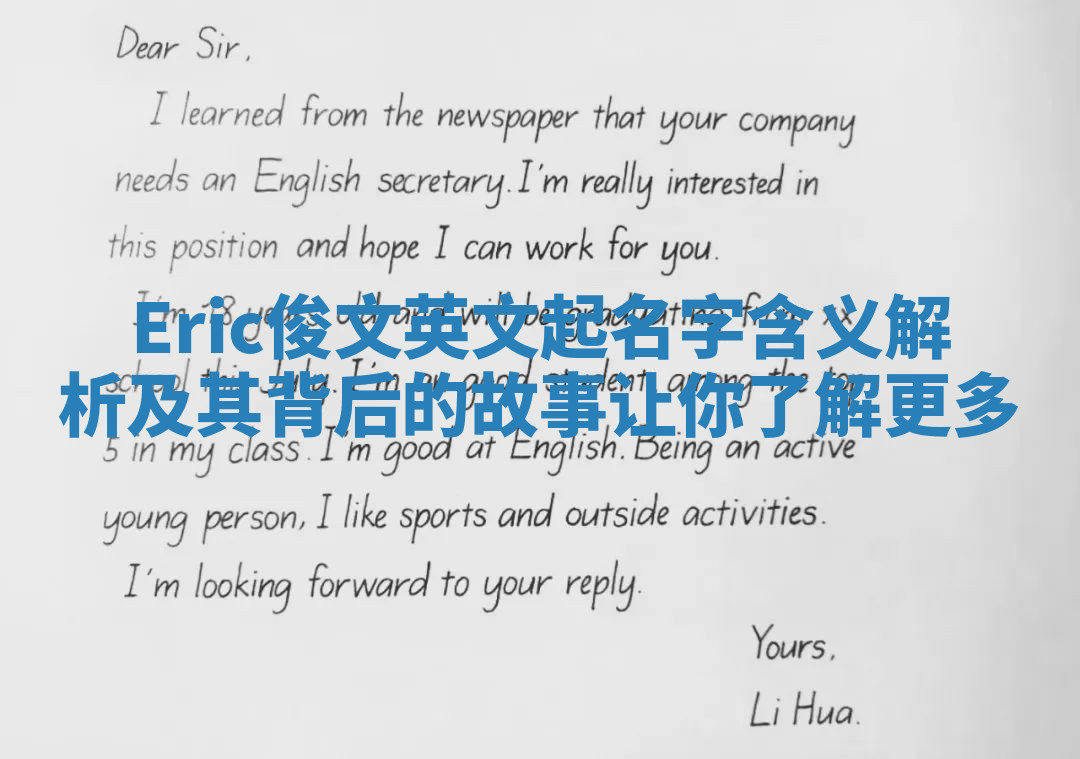 Dear Sir,
I learned from the newspaper that your company
needs an English secretary. I'm really interested in
this position and hope I can work for you.
I'm 18 years old and will be graduating from xx
Eric俊文英文起名字含义解
school this July. I'm an good student, among the top
析及其背后的故事让你了解更多
5 in my class. I'm good at English. Being an active
young person, I like sports and outside activities.
I'm looking forward to your reply.
Yours,
Li Hua.